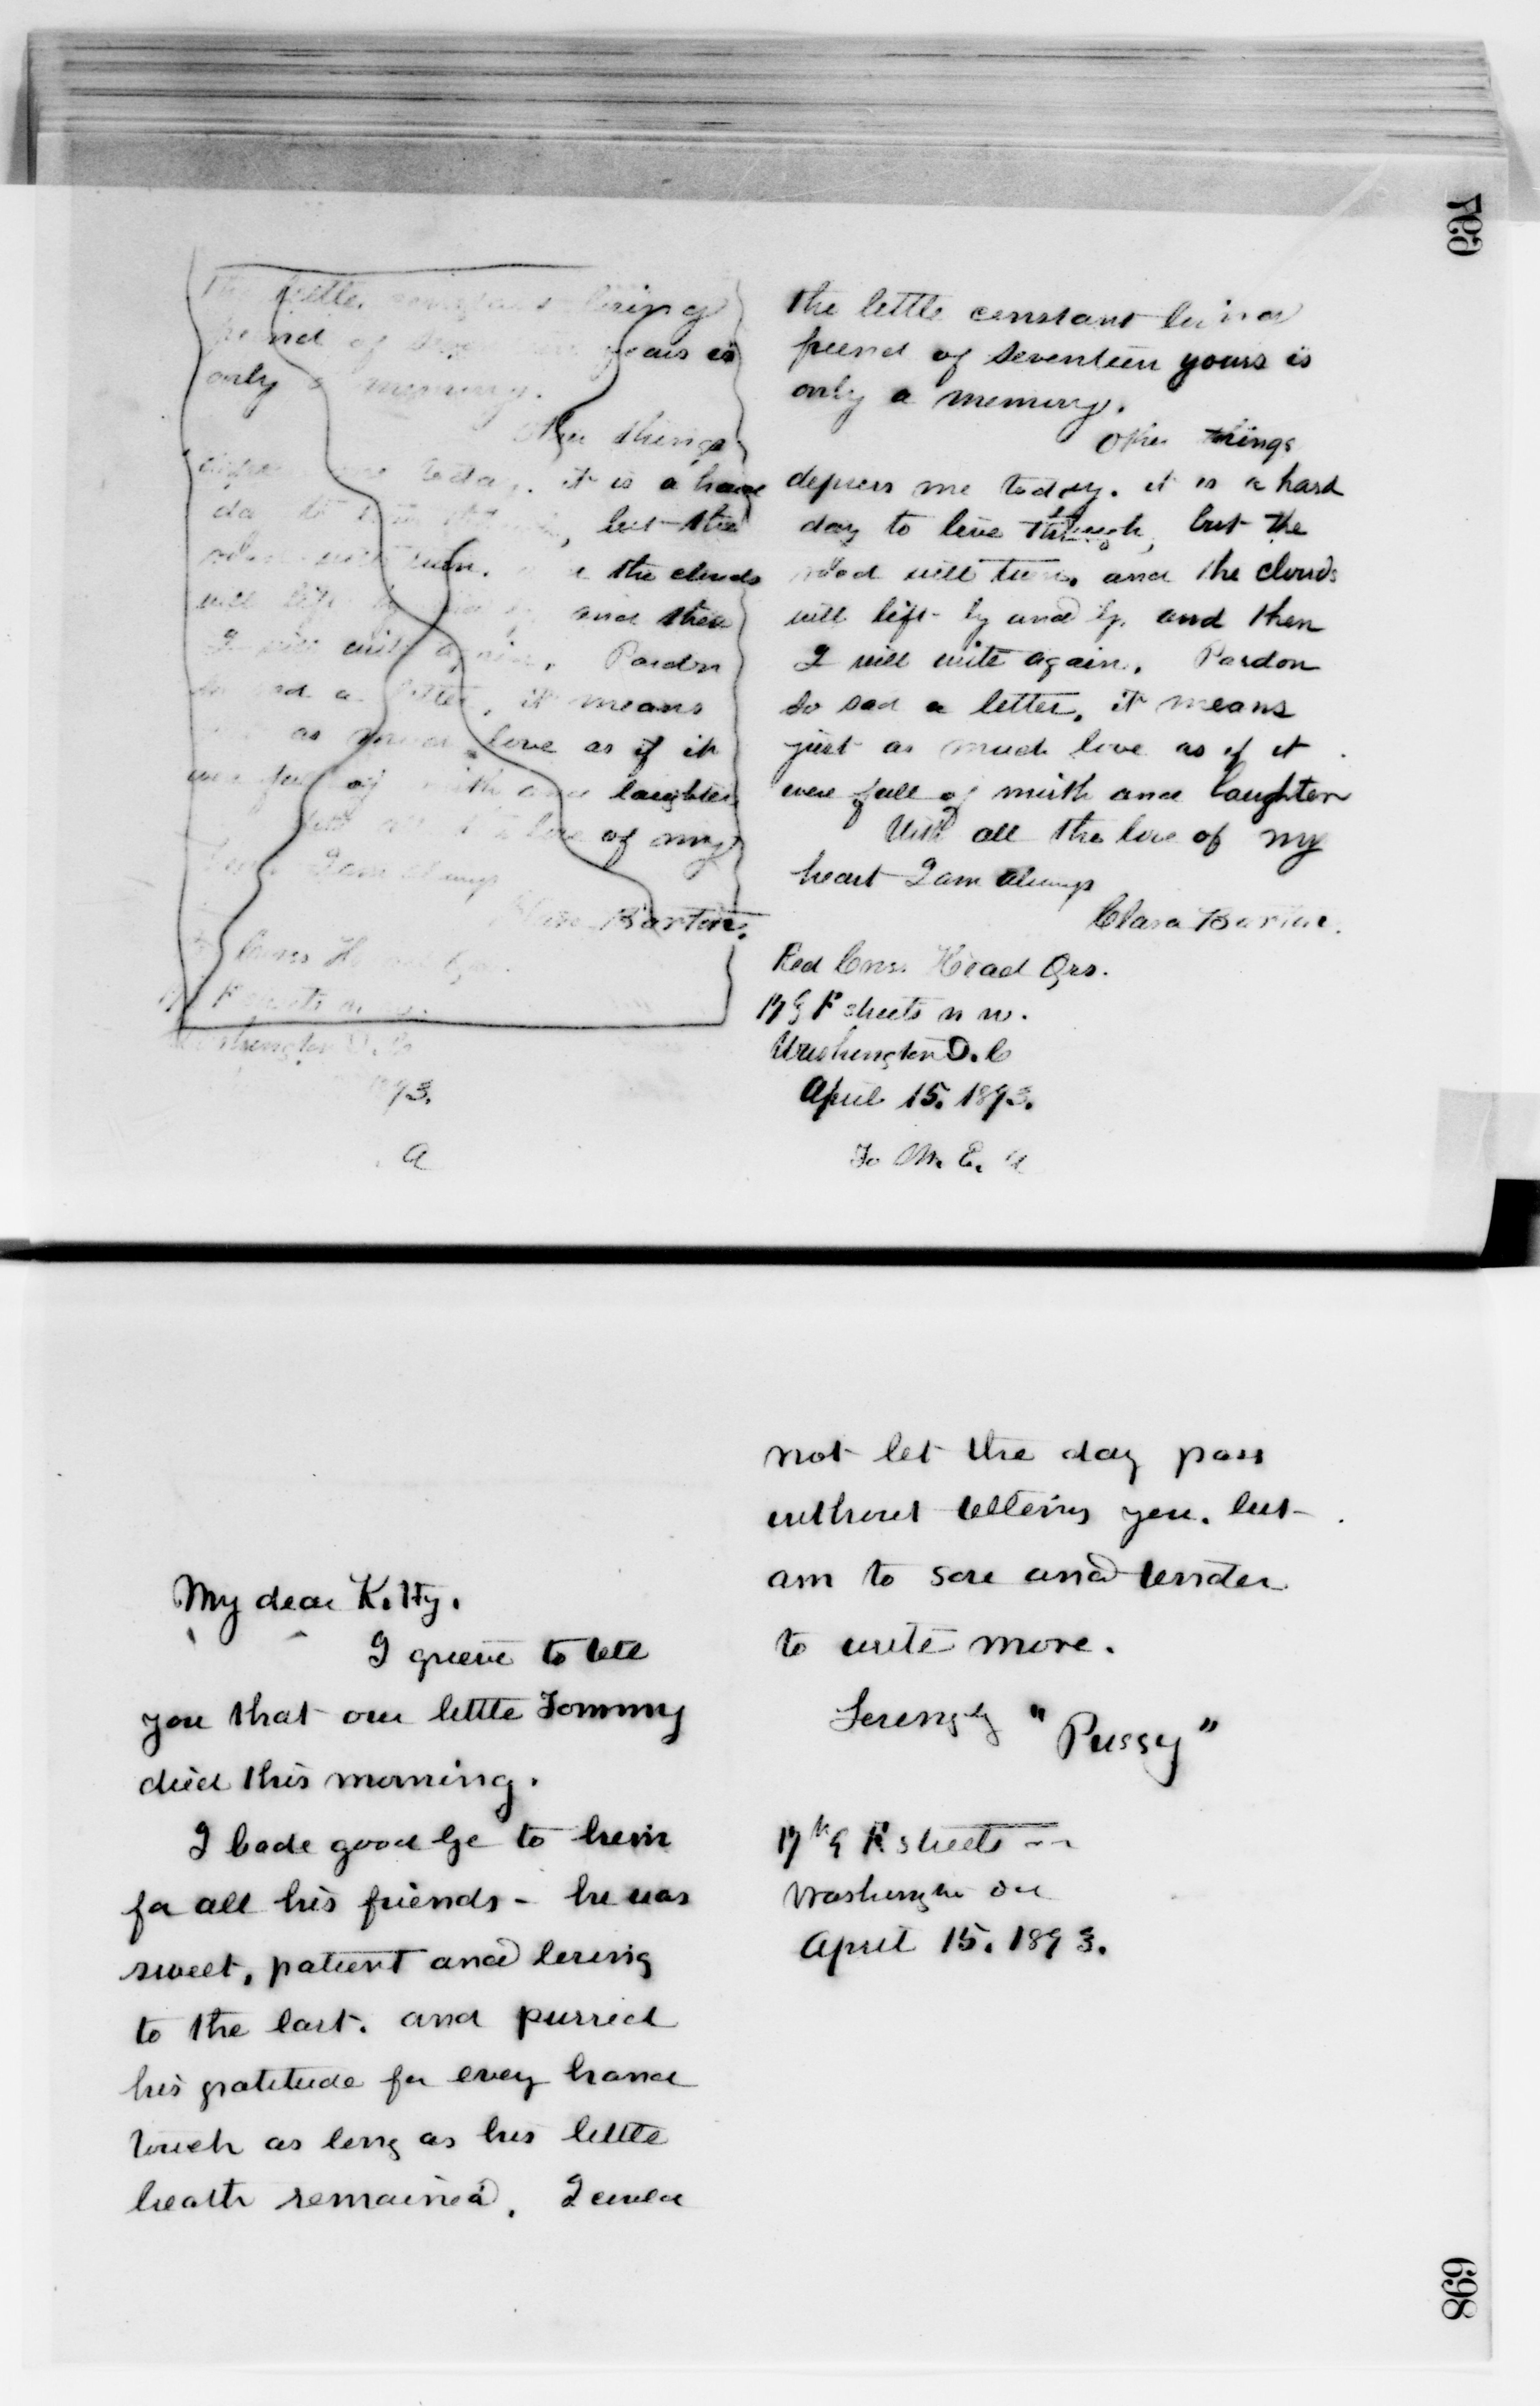 769
little
years is
only a memory.
Other things
today. it is a hard
but the
turn. the clouds
will lift and then
I will write again. Pardon
a letter, it means
as much love as if it
of mirth and laughter
all the love of my
I am always
Clara Barton.
Cross
Washington D. C
93.
a
the little constant living
friend of seventeen years is
only a memory.
Other things
depress me today. it is a hard
day to live through, but the
road will turn, and the clouds
will lift by and by. and then
I will write again. Pardon
so sad a letter, it means
just as much love as if it
were full of mirth and laughter
With all the love of my
heart I am always
Clara Barton.
Red Cross Head Qrs.
17 & F streets n w.
Washington D. C
April 15. 1893.
To M. E. A
My dear Kitty.
I grieve to tell
you that our little Tommy
died this morning.
I bade good bye to him
for all his friends - he was
sweet, patient and loving
to the last. and purred
his gratitude for every hand
touch as long as his little
breath remained. I could
not let the day pass
without telling you. but
am to sore and tender
to write more.
Lovingly "Pussy"
17th & F streets
Washington
April 15. 1893.
869